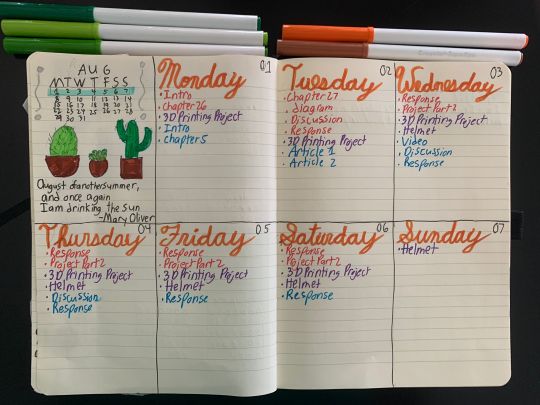 AUG
M T W T F S S
1 2 3 4 5 6 7
8 9 10 11 12 13 14
15 16 17 18 19 20 21
22 23 24 25 26 27 28
29 30 31
August of another summer,
and once again
I am drinking the sun
-Mary Oliver
01
Monday
• Intro
• Chapter 26
• 3D Printing Project
• Intro
• chapter 5
02
Tuesday
• Chapter 27
• Diagram
• Discussion
• Response
• 3D Printing Project
• Article 1
• Article 2
03
Wednesday
• Response
• Project Part 2
• 3D Printing Project
• Helmet
• Video
• Discussion
• Response
04
Thursday
• Response
• Project Part 2
• 3D Printing Project
• Helmet
• Discussion
• Response
05
Friday
• Response
• Project Part 2
• 3D Printing Project
• Helmet
• Response
06
Saturday
• Response
• Project Part 2
• 3D Printing Project
• Helmet
• Response
07
Sunday
• Helmet